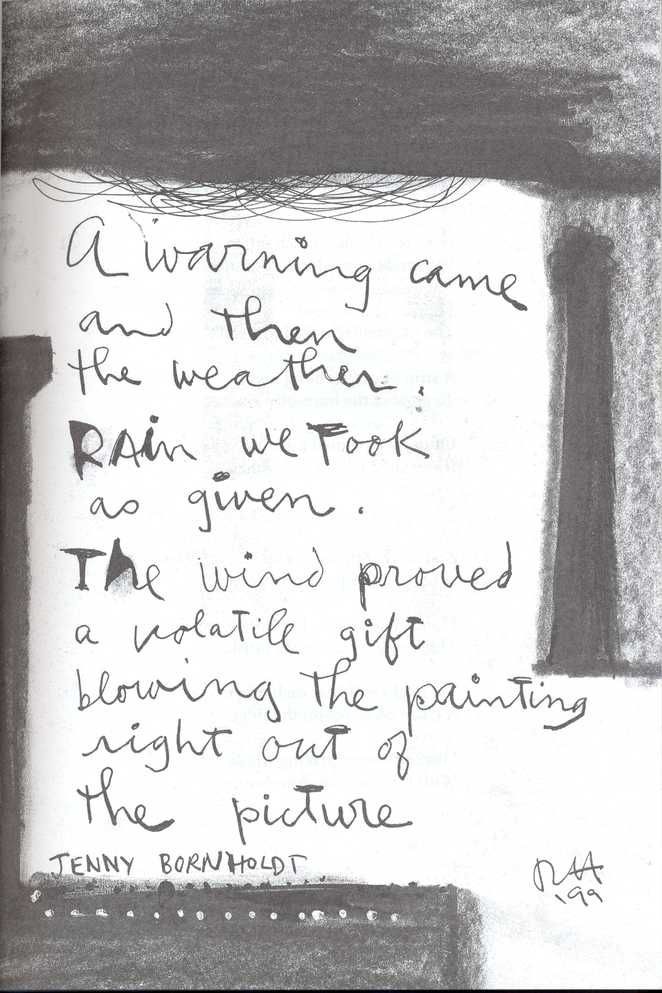 A warning came
and then
the weather.
RAin we Took
as given.
The wind proved
a volatile gift
blowing the painting
right out of
the picture
JENNY BORNHOLDT
'99